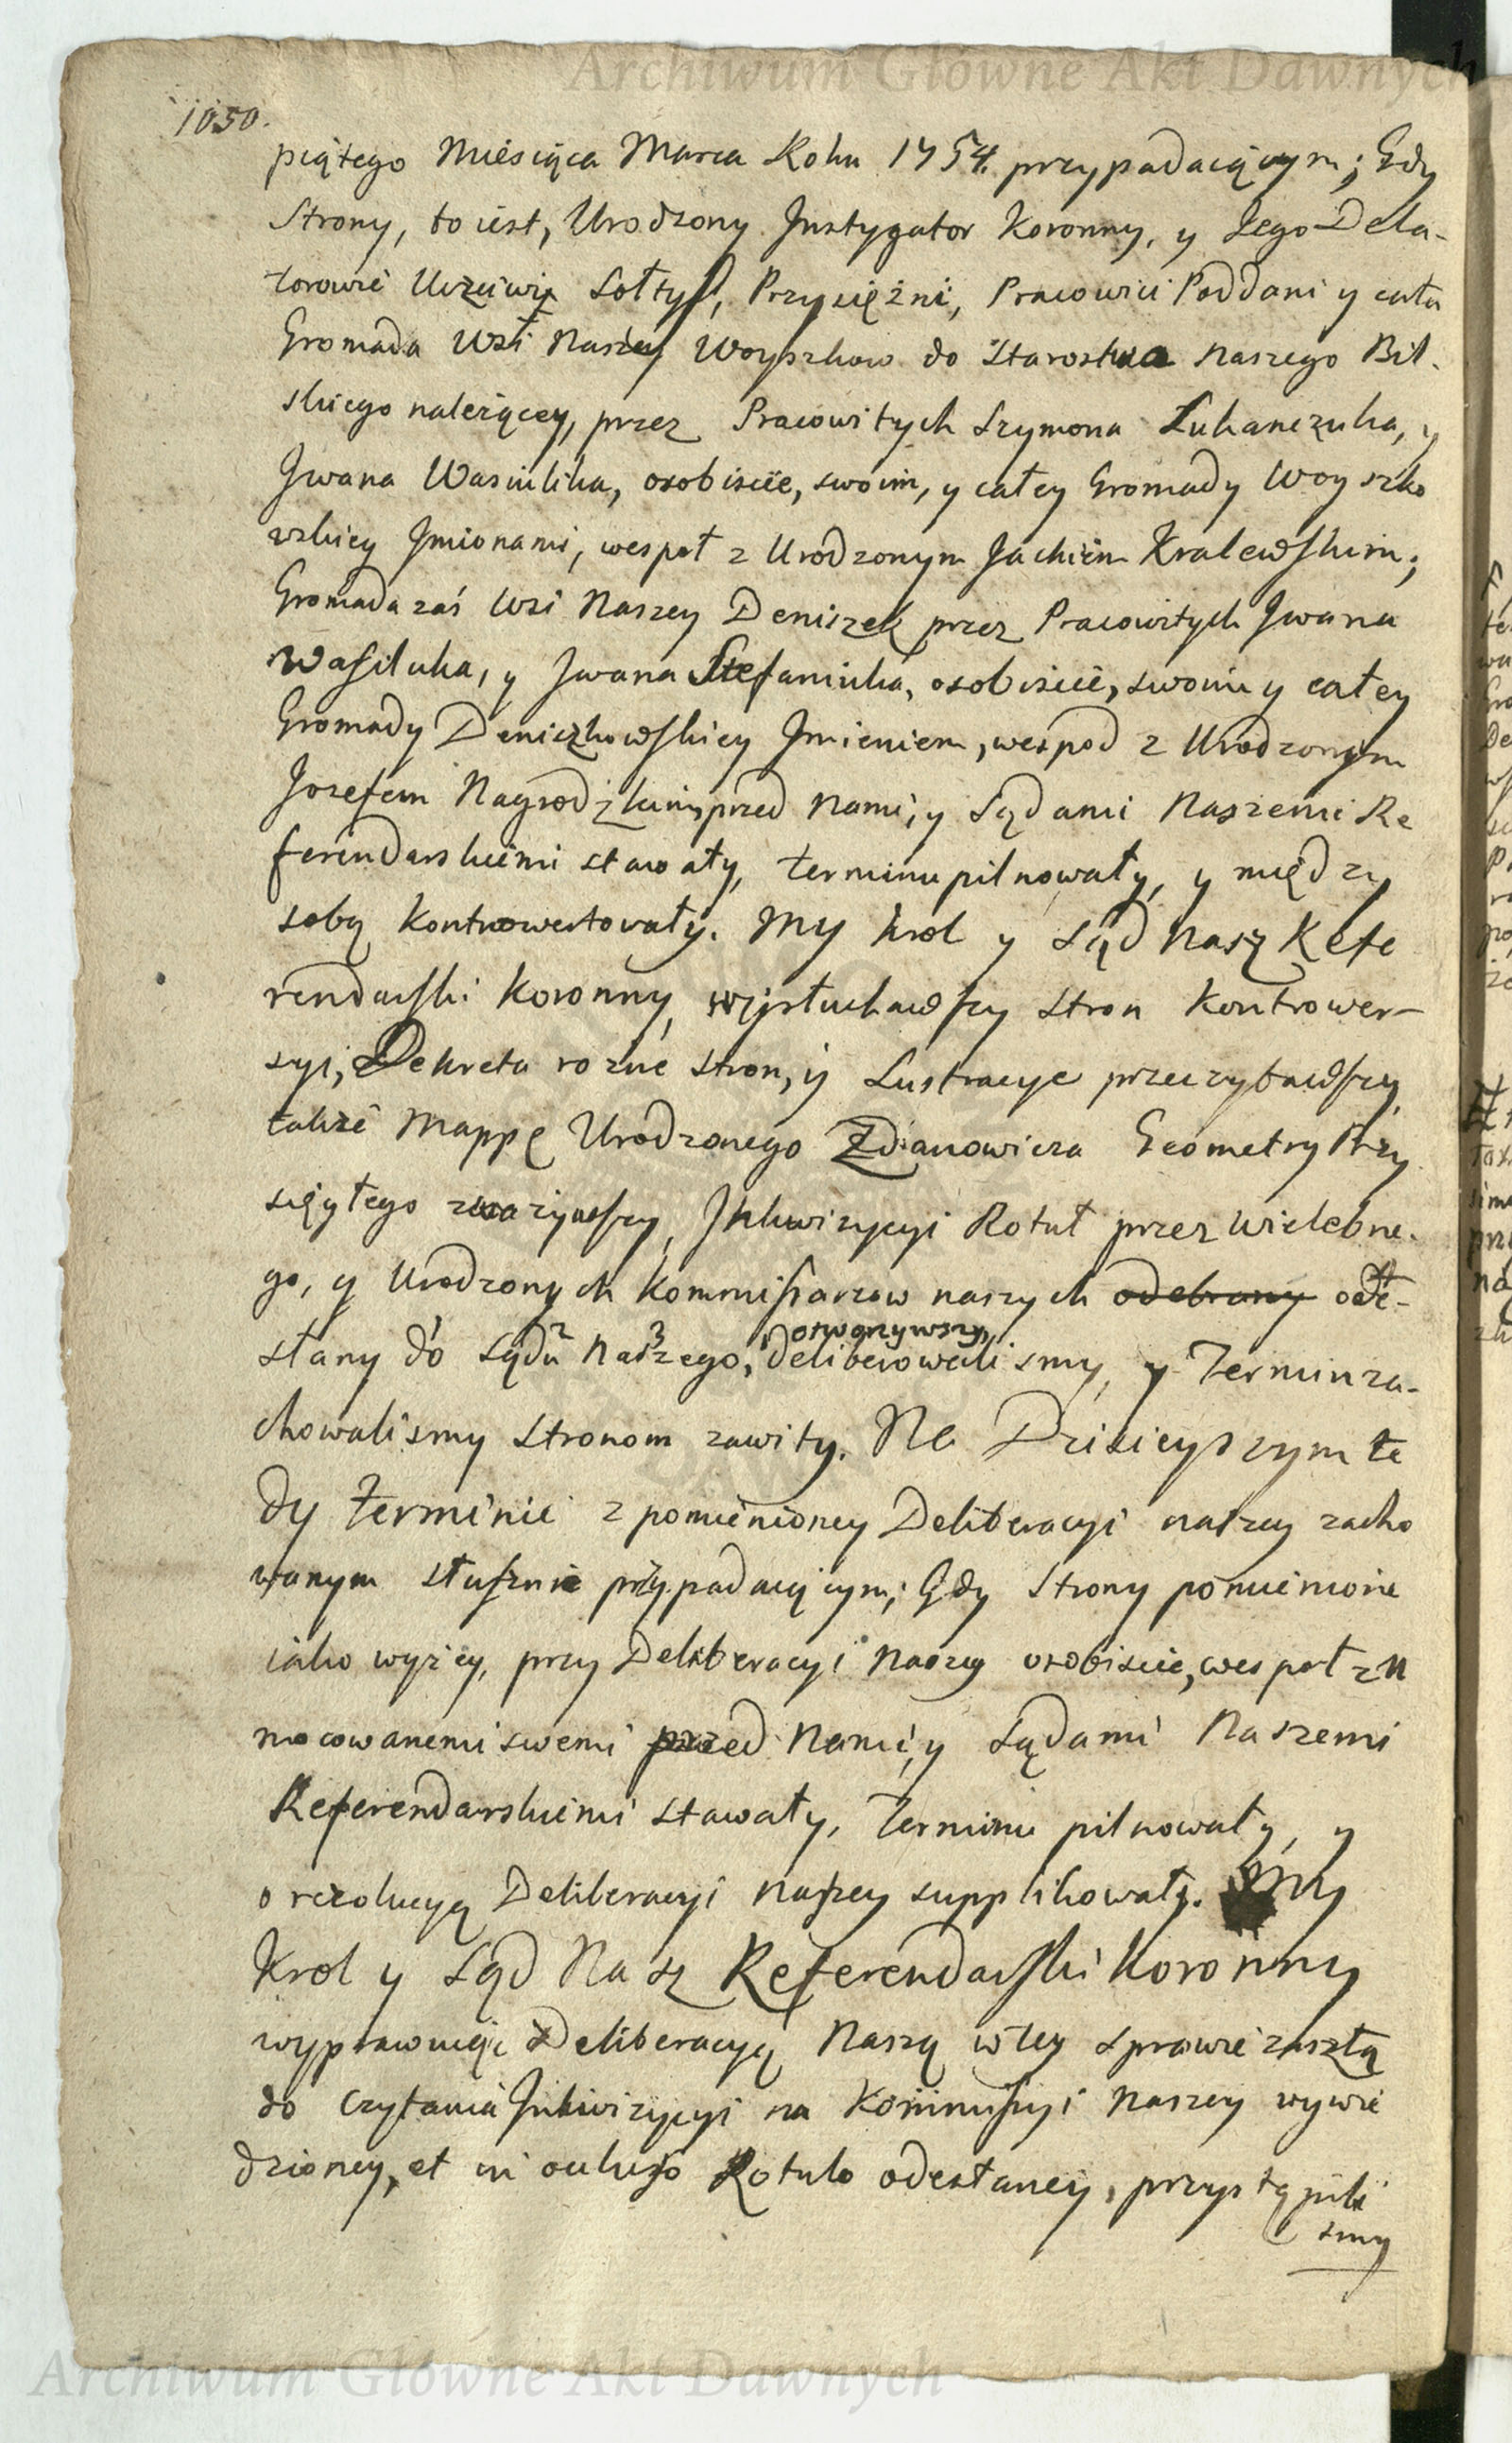 Archiwum Główne Akt Dawnych
1050.
piątego Miesiąca Marca Roku 1754. przypadaiącym; Gdy
Strony, to iest, Urodzony Instygator Koronny, y Jego Dela-
torowie Uczciwi Sołtys, Przysiężni, Pracowici Poddani y cała
Gromada Wsi Naszey Woyszkow do Starostwa naszego Bil-
skiego należącey, przez Pracowitych Szymona Łukanczuka, y
Jwana Wasiulika, osobiscie, swoim, y całey Gromady Woyszko
wskiey Jmionami, wespoł z Urodzonym Jackiem Kralewskim;
Gromada zaś Wsi Naszey Deniszek przez Pracowitych Jwana
Wasiluka, y Jwana Stefaniuka, osobiscie, swoim y całey
Gromady Deniszkowskiey Jmieniem, wespod z Urodzonym
Jozefem Nagrodzkim, przed Nami, y Sądami Naszemi Re
ferendarskiemi stawały, terminu pilnowały, y między
sobą kontrowertowały. My Krol y Sąd Nasz Refe
rendarski Koronny, wysłuchawszy stron kontrower-
syi, Dekreta rozne stron, y Lustracye przeczytawszy,
także Mappę Urodzonego Zdianowicza Geometry Przy
sięgłego zważywszy, Jnkwizycyi Rotuł przez Wielebne-
go, y Urodzonych Kommissarzow naszych odebrany ode-
słany do Sądu 2 Naszego 3, otworzywszy, deliberowalismy, y Termin za-
chowalismy stronom zawity. Na Dzisieyszym te
dy terminie z pomienioney Deliberacyi naszey zacho
wanym słusznie przypadaiącym; Gdy Strony pomienione
iako wyżey, przy Deliberacyi Naszey osobiscie, wespoł z u
mocowanemi swemi przed Nami, y Sądami Naszemi
Referendarskiemi stawały, Terminu pilnowały, y
o rezolucyą Deliberacyi naszey supplikowały. My
Krol y Sąd Nasz Referendarski Koronny
wyprawuiąc Deliberacyą Naszą w tey sprawie zaszłą
do czytania Jnkwizycyi na Kommissyi Naszey wywie
dzioney, et in ocluso Rotulo odesłaney, przystąpili
smy
Archiwum Główne Akt Dawnych